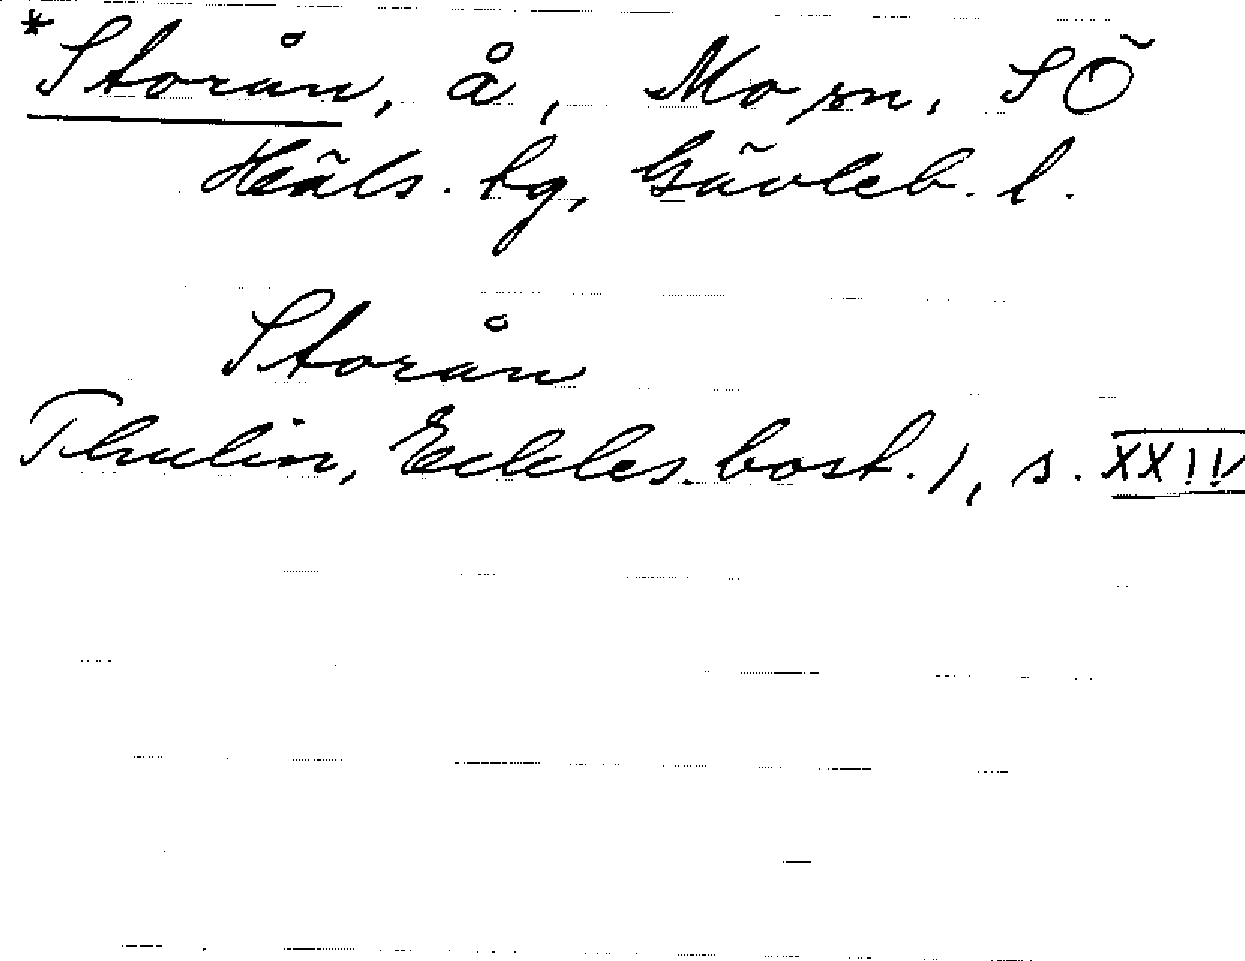 *Storån, å, Mo sn, SÖ
Häls. tg, Gävleb. l.
Storån
Thulin, Eckles. bost. 1, s. XXIIV